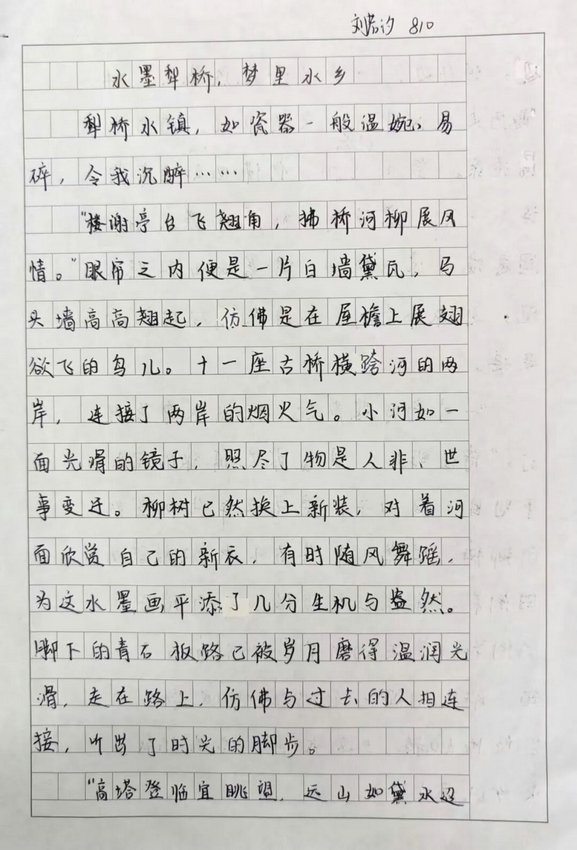 刘岩汐 810
水墨犁桥，梦里水乡
犁桥水镇，如瓷器一般温婉、易
碎，令我沉醉……
“楼谢亭台飞翘角，拂桥河柳展风
情。”眼帘之内便是一片白墙黛瓦，马
头墙高高翘起，仿佛是在屋檐上展翅
欲飞的鸟儿。十一座古桥横跨河的两
岸，连接了两岸的烟火气。小河如一
面光滑的镜子，照尽了物是人非、世
事变迁。柳树已然换上新装，对着河
面欣赏自己的新衣，有时随风舞蹈，
为这水墨画平添了几分生机与盎然。
脚下的青石板路已被岁月磨得温润光
滑，走在路上，仿佛与过去的人相连
接，听当了时光的脚步。
“高塔登临宜眺望，远山如黛水边